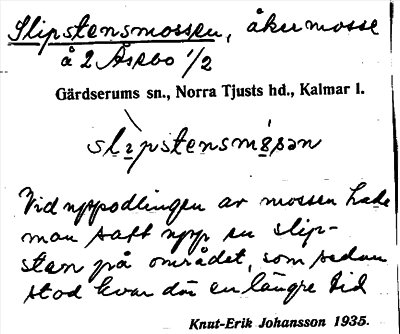 Slipstensmossen, åkermosse
å 2 Åsebo 1/2
Gärdserums sn., Norra Tjusts hd., Kalmar l.
slìpstensmósən
Vid uppodlingen av mossen hade
man satt upp en slip-
sten på området, som sedan
stod kvar där en längre tid
Knut-Erik Johansson 1935.